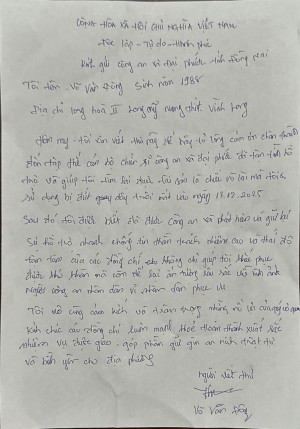 CỘNG HÒA XÃ HỘI CHỦ NGHĨA VIỆT NAM
Độc lập - Tự do - Hạnh phúc
Kính gửi công an xã Đại phước tỉnh Đồng Nai
Tôi tên - Võ Văn Đông Sinh năm 1988
Địa chỉ long hoà II Long mỹ Vĩnh Long
Hôm nay - tôi xin viết thư này để bày tỏ lòng cảm ơn chân thành
đến tập thể cán bộ chiến sĩ công an xã đại phước đã tận tình hỗ
trợ và giúp tôi tìm lại được tài sản là chiếc
ngày 18.12.2025
Sau đó tôi được biết đã được công an xã phát hiện và giữ lại
Sự hỗ trợ nhanh chóng tinh thần trách nhiệm cao và thái độ
tận tâm của các đồng chí không chỉ giúp tôi khắc phục
được khó khăn mà còn để lại ấn tượng sâu sắc về hình ảnh
Người công an nhân dân vì nhân dân phục vụ
Tôi vô cùng cảm kích và trân trọng những nỗ lực của
Kính chúc các đồng chí luôn mạnh khoẻ hoàn thành xuất sắc
nhiệm vụ được giao - góp phần giữ gìn an ninh trật tự
và bình yên cho địa phương
người viết thư
Võ Văn Đông